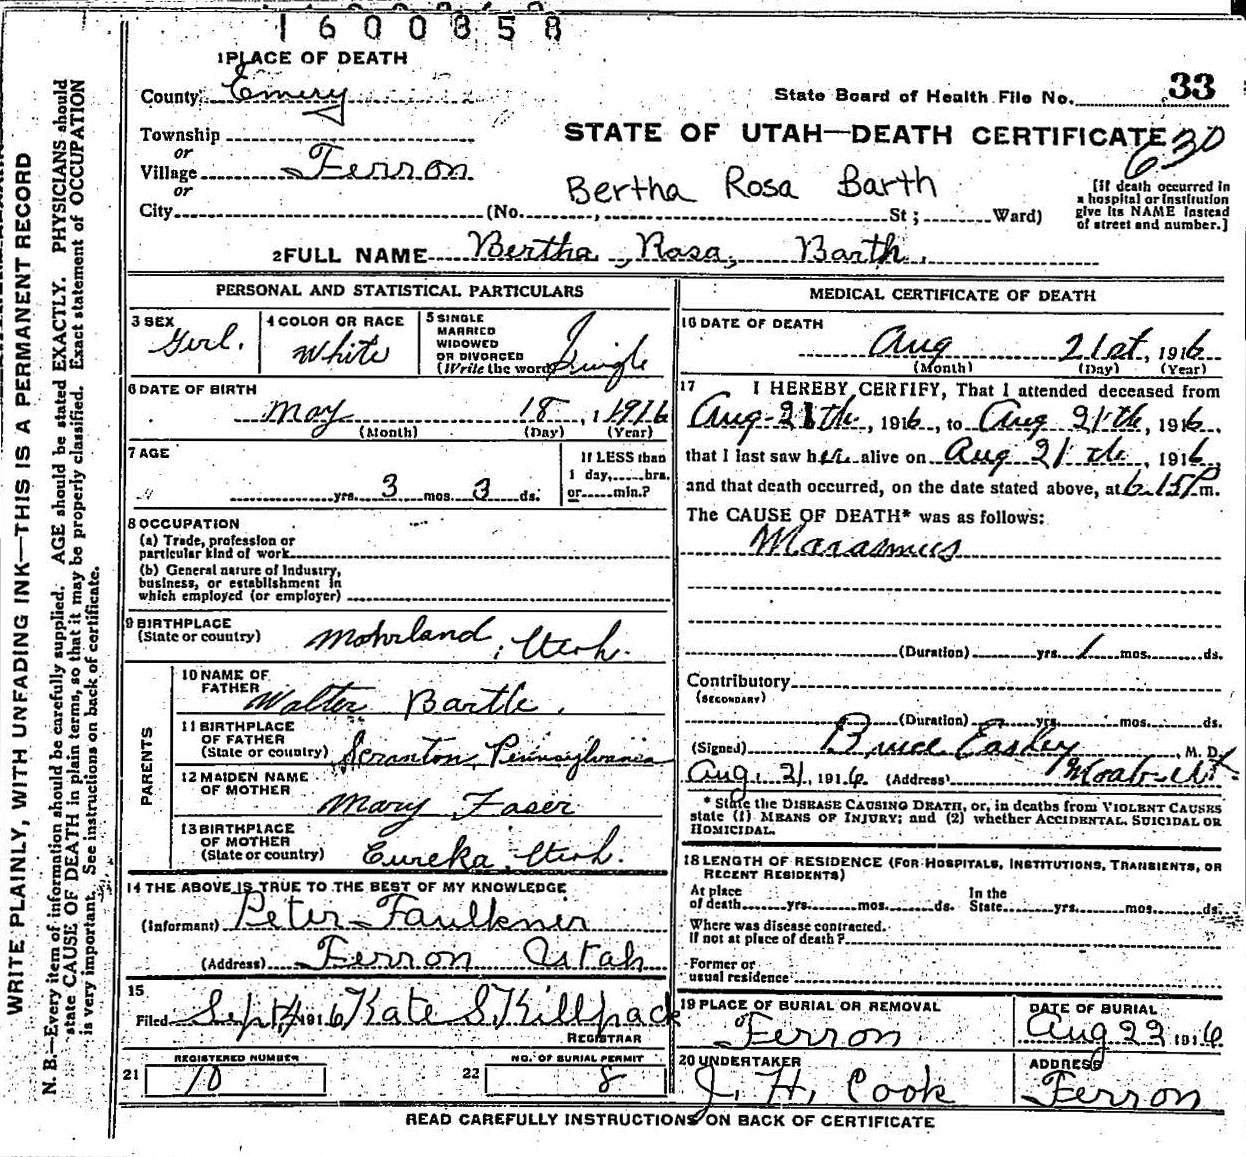 1600858
1 PLACE OF DEATH
County Emery
State Board of Health File No. 33
Township
STATE OF UTAH—DEATH CERTIFICATE 630
or
Village Ferron
Bertha Rosa Barth
or
City (No. , St; Ward)
[If death occurred in
a hospital or institution
give its NAME instead
of street and number.]
2 FULL NAME Bertha, Rosa, Barth.
PERSONAL AND STATISTICAL PARTICULARS
3 SEX Girl.
4 COLOR OR RACE White
5 SINGLE
MARRIED
WIDOWED
OR DIVORCED
(Write the word) Single
6 DATE OF BIRTH
May 18, 1916
(Month) (Day) (Year)
7 AGE
yrs. 3 mos. 3 ds.
If LESS than
1 day, hrs.
or min.?
8 OCCUPATION
(a) Trade, profession or
particular kind of work
(b) General nature of Industry,
business, or establishment in
which employed (or employer)
9 BIRTHPLACE
(State or country) Mohrland, Utah.
PARENTS
10 NAME OF
FATHER Walter Barth.
11 BIRTHPLACE
OF FATHER
(State or country) Scranton, Pennsylvania
12 MAIDEN NAME
OF MOTHER Mary Faser
13 BIRTHPLACE
OF MOTHER
(State or country) Eureka, Utah.
14 THE ABOVE IS TRUE TO THE BEST OF MY KNOWLEDGE
(Informant) Peter Faulkner
(Address) Ferron Utah
15
Filed Sept 4 1916 Kate S. Killpack
REGISTRAR
REGISTERED NUMBER
21 10
NO. OF BURIAL PERMIT
22 8
MEDICAL CERTIFICATE OF DEATH
16 DATE OF DEATH
Aug 21st, 1916
(Month) (Day) (Year)
17 I HEREBY CERTIFY, That I attended deceased from
Aug 21th, 1916, to Aug 21th, 1916,
that I last saw her alive on Aug 21th, 1916
and that death occurred, on the date stated above, at 6:15 P m.
The CAUSE OF DEATH* was as follows:
Marasmus
(Duration) yrs. 1 mos. ds.
Contributory
(SECONDARY)
(Duration) yrs. mos. ds.
(Signed) Bruce Easley M. D.
Aug. 21, 1916 (Address) Moab Ut.
* State the DISEASE CAUSING DEATH, or, in deaths from VIOLENT CAUSES
state (1) MEANS OF INJURY; and (2) whether ACCIDENTAL, SUICIDAL OR
HOMICIDAL.
18 LENGTH OF RESIDENCE (FOR HOSPITALS, INSTITUTIONS, TRANSIENTS, OR
RECENT RESIDENTS)
At place
of death yrs. mos. ds.
In the
State yrs. mos. ds.
Where was disease contracted.
If not at place of death?
Former or
usual residence
19 PLACE OF BURIAL OR REMOVAL
Ferron
DATE OF BURIAL
Aug 22 1916
20 UNDERTAKER
J. H. Cook
ADDRESS
Ferron
READ CAREFULLY INSTRUCTIONS ON BACK OF CERTIFICATE
WRITE PLAINLY, WITH UNFADING INK—THIS IS A PERMANENT RECORD
N. B.—Every item of information should be carefully supplied. AGE should be stated EXACTLY. PHYSICIANS should
state CAUSE OF DEATH in plain terms, so that it may be properly classified. Exact statement of OCCUPATION
is very important. See instructions on back of certificate.